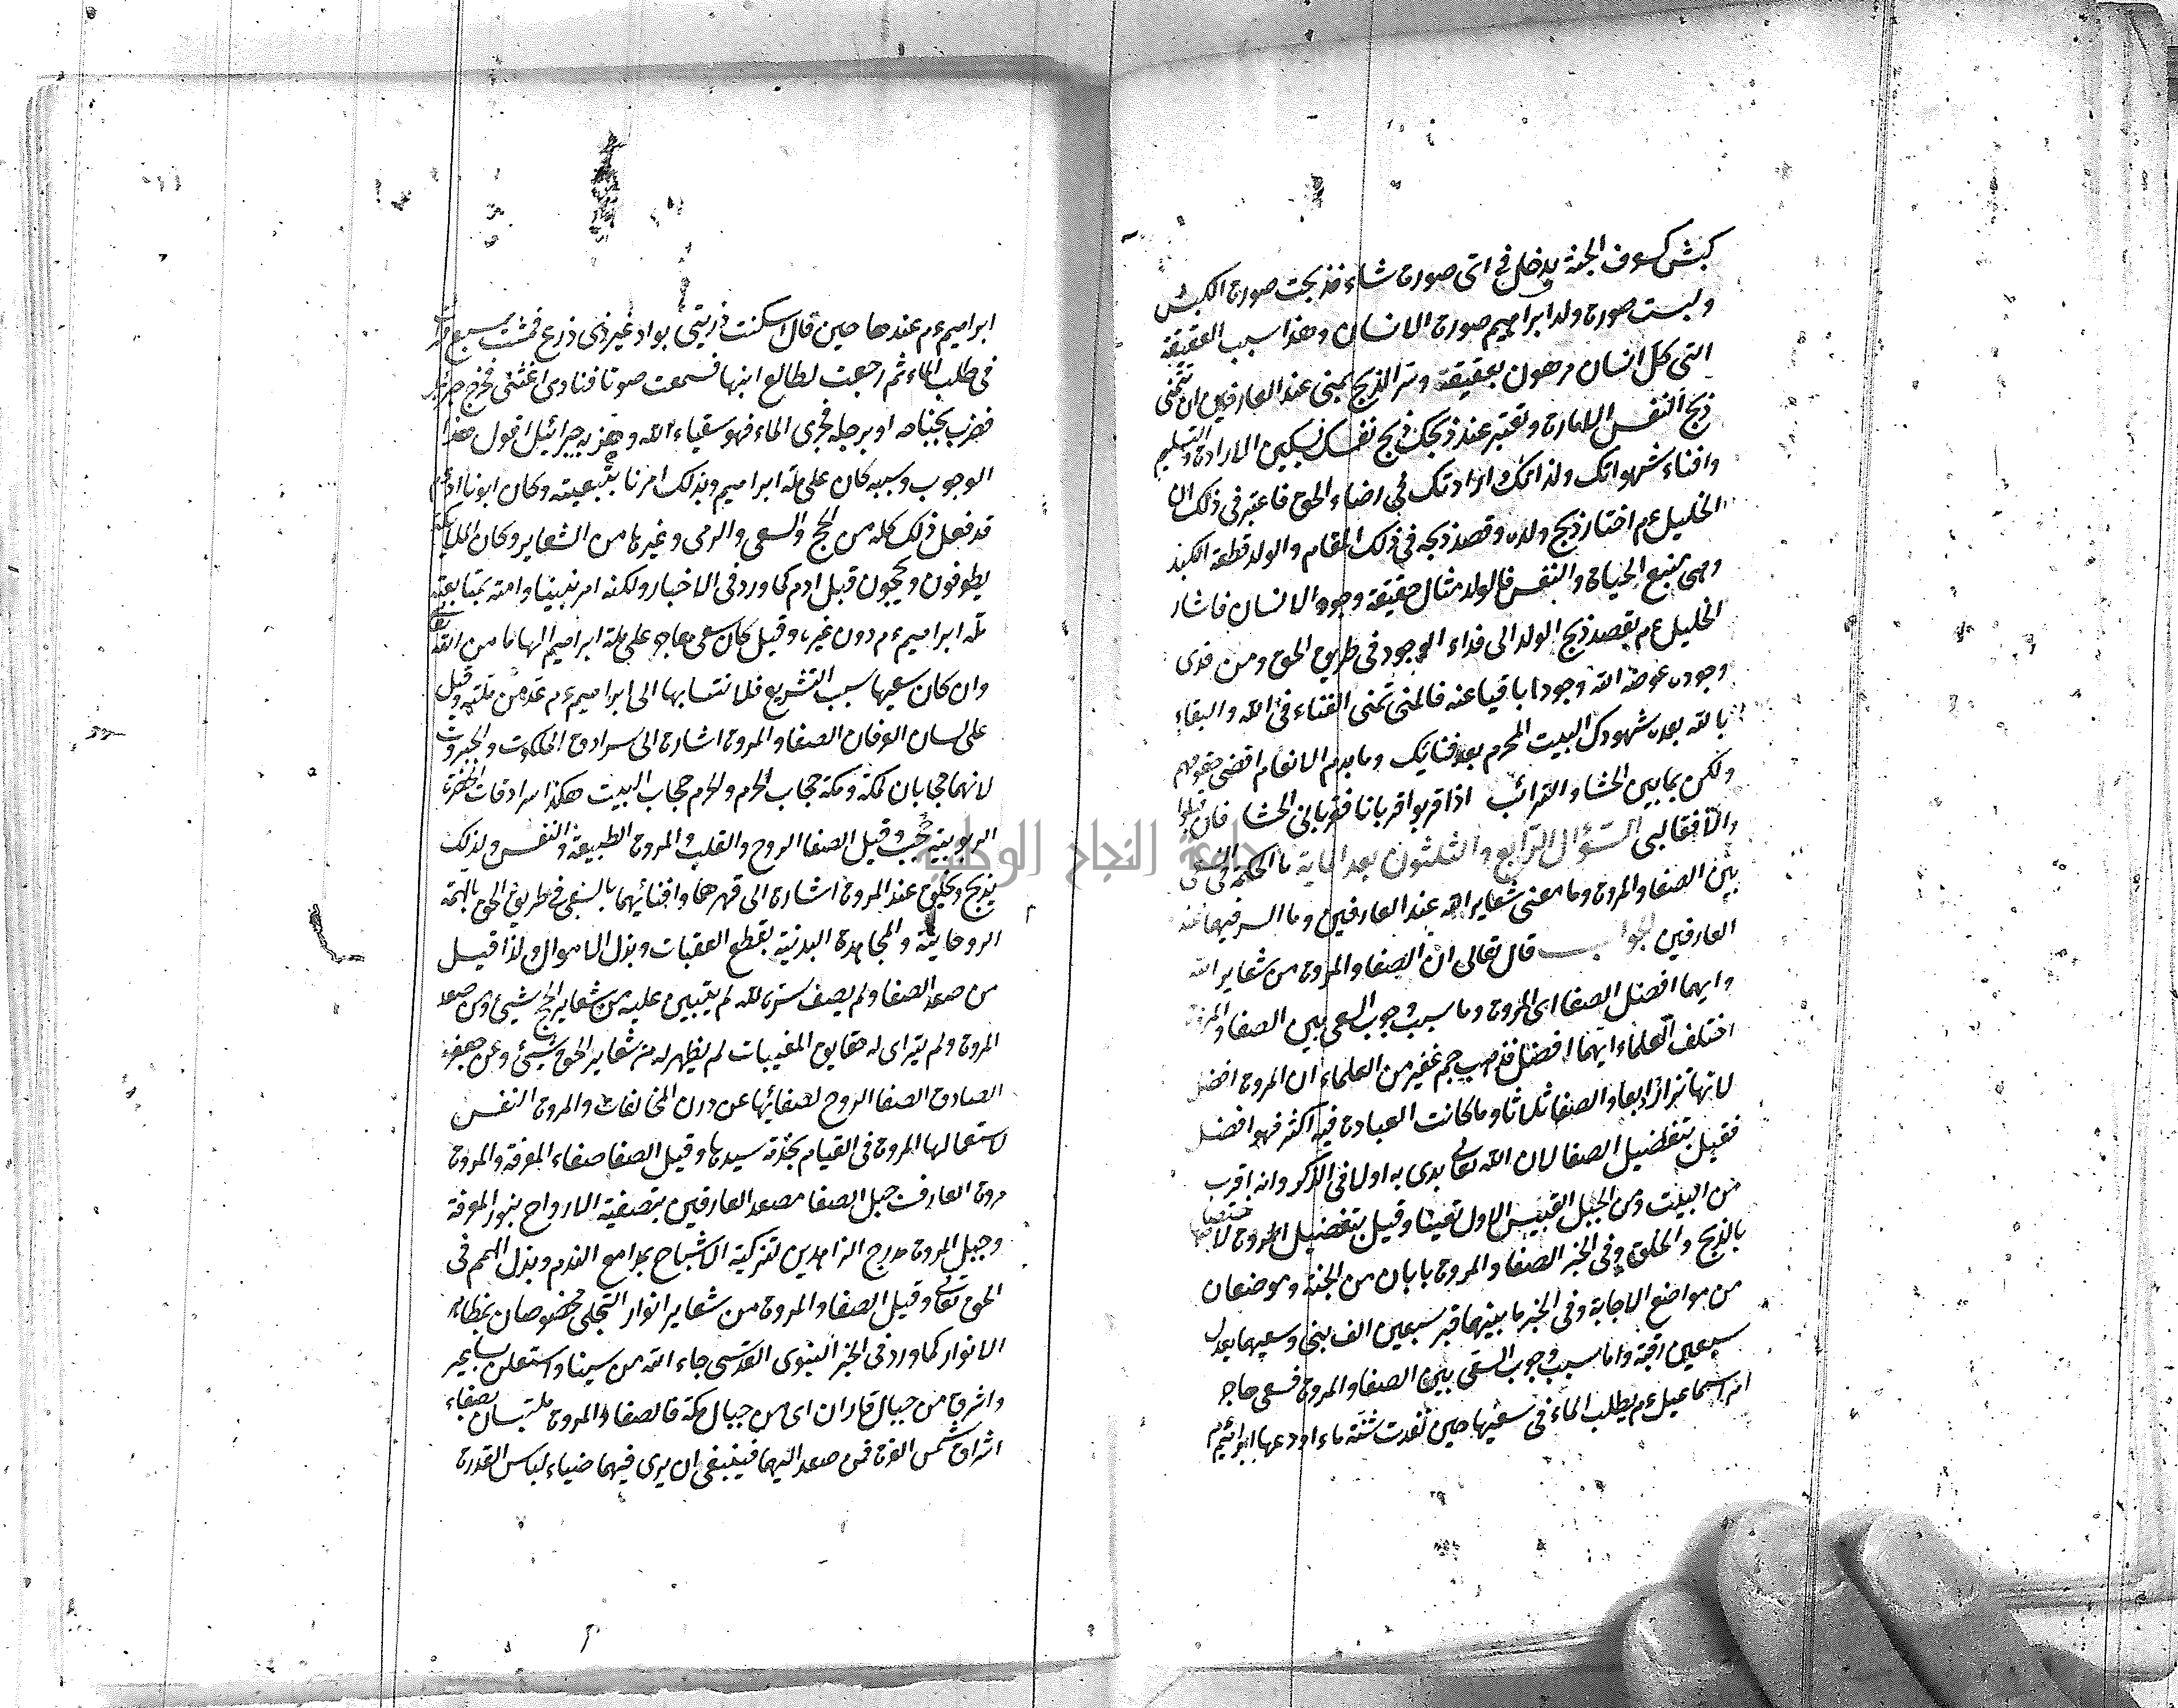 كبش كسوف الجنة يدخل في اى صورة شاء فذبحت صورة الكبش
ولبست صورة ولد ابراهيم صورة الانسان وهذا سبب العقيقة
التى كل انسان مرهون بعقيقة وسر الذبح بمنى عند العارفين ان تتمنى
ذبح النفس الامارة وتعتبر عند ذبحك ذبح نفسك بسكين الارادة والتسليم
وافناء شهواتك ولذاتك وارادتك في رضاء الحق فاعتبر في ذلك ان
الخليل ءم اختار ذبح ولده وقصد ذبحه في ذلك المقام والولد قطعة الكبد
وهى منبع الحياة والنفس فالولد مثال حقيقة وجود الانسان فاشار
الخليل ءم بقصد ذبح الولد الى فداء الوجود في طريق الحق ومن فدى
وجوده عوضه الله وجودا باقيا عنه فالمنى تمنى الفناء في الله والبقاء
بالله بعده شهودك البيت المحرم بعد فنائك وما بدم الانعام اقضى حقوقهم
ولكن بما بين الحشا والترائب اذا قربوا قربانا فقربانى الحشا فان قبلوا
والا فقالبى السؤال الرابع والثلثون بعد الماية ما الحكمة في السعى
بين الصفا والمروة وما معنى شعاير الله عند العارفين وما السر فيهما عند
العارفين الجواب قال تعالى ان الصفا والمروة من شعاير الله
وايهما افضل الصفا اى المروة وما سبب وجوب السعى بين الصفا والمروة
اختلف العلماء ايهما افضل فذهب جم غفير من العلماء ان المروة افضل
لانها تزار اربعا والصفا ثلاثا وما كانت العبادة فيه اكثر فهو افضل
فقيل بتفضيل الصفا لان الله تعالى بدى به اولا في الذكر وانه اقرب
من البيت ومن الجبل القبيس الاول تعينا وقيل بتفضيل المروة لاختصاصها
بالذبح والحلق وفي الخبر الصفا والمروة بابان من الجنة وموضعان
من مواضع الاجابة وفي الخبر ما بينهما قبر سبعين الف نبى وسعيهما يعدل
سبعين رقبة واما سبب وجوب السعى بين الصفا والمروة فسعى هاجر
ام اسماعيل ءم يطلب الماء في سعيها حين نفدت شنة ماء اودعها ابراهيم
ابراهيم ءم عندها حين قال اسكنت ذريتى بواد غير ذى ذرع فمشت سبع مرات
في طلب الماء ثم رجعت لطالع ابنها فسمعت صوتا فنادى اغثنى فخرج جبرئيل
فضرب بجناحه او برجله فجرى الماء فهو سقياء الله وهزبه جبرائيل اقول هذا
الوجوب وسببه كان على ملة ابراهيم وبذلك امرنا بتبعيته وكان ابونا ادم
قد فعل ذلك كله من الحج والسعى والرمى وغيرها من الشعاير وكان الملائكة
يطوفون ويحجون قبل ادم كما ورد في الاخبار ولكنه امر نبينا وامته بمتابعة
ملة ابراهيم ءم دون غيره وقيل كان سعى هاجر على ملة ابراهيم الهاما من الله تعالى
وان كان سعيها سبب التشريع فلانتسابها الى ابراهيم ءم عد من ملته وقيل
على لسان العرفان الصفا والمروة اشارة الى سرادق الملكوت والجبروت
لانهما حجابان لمكة ومكة حجاب الحرم والحرم حجاب البيت هكذا سرادقات الحضرة
الربوبية حجب وقيل الصفا الروح والقلب والمروة الطبيعة والنفس ولذلك
يذبح ويحلق عند المروة اشارة الى قهرها وافنائهما بالسعى في طريق الحق بالهمة
الروحانية والمجاهدة البدنية بقطع العقبات وبذل الاموال ولذا قيل
من صعد الصفا ولم يصف سره لله لم يتبين عليه من شعاير الحج شيئ ومن صعد
المروة ولم يتراى له حقايق المغيبات لم يظهر له من شعاير الحق شيئ وعن جعفر
الصادق الصفا الروح لصفائها عن درن المخالفات والمروة النفس
لاستعمالها المروة في القيام بخدمة سيدها وقيل الصفا صفاء المعرفة والمروة
مروة العارف جبل الصفا مصعد العارفين بتصفية الارواح بنور المعرفة
وجبل المروة مدرج الزاهدين لتزكية الاشباح بدامع الندم وبذل الهمم في
الحق تعالى وقيل الصفا والمروة من شعاير انوار التجلى مخصوصان بخطاب
الانوار كما ورد في الخبر النبوى القدسى جاء الله من سينا واستعلن بساعير
واشرق من جبال فاران اى من جبال مكة فالصفا والمروة ملتبسان بصفاء
اشراق شمس القدرة فمن صعد اليهما فينبغى ان يرى فيهما ضياء لباس القدرة
جامعة النجاح الوطنية